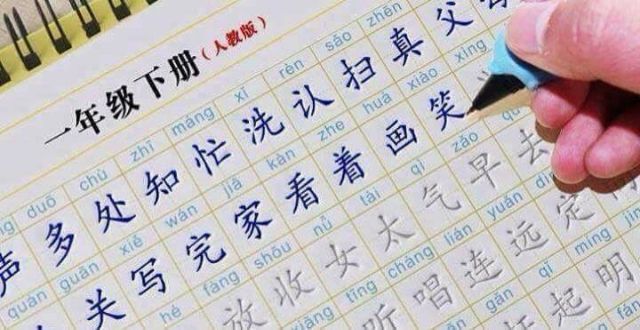 一年级下册（人教版）
duō chù zhī máng xǐ rèn sǎo zhēn
声多处知忙洗认扫真父
quán guān xiě wán jiā kàn zhe huà xiào xìng
关写完家看着画笑
hé fàng shōu nǚ tài qì zǎo
放收女太气早去
tīng chàng lián yuǎn dìng
听唱连远定
gǎn qǐ míng
赶起明